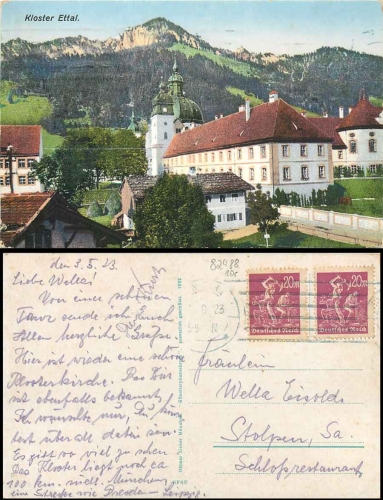 Kloster Ettal.
den 3.5.23
Liebe Wella!
Von einer schönen
Tour sende ich Euch
Allen herzliche Grüße
Hier ist wieder eine schöne
Klosterkirche. Das
ist ebenfalls bekannt.
Ich wünschte nur, Du kön
test überall dabei sein
Es gibt so viel zu sehen
Das Kloster liegt noch ca
100 km. südl. München
eine Strecke wie Dresden - Leipzig.
82488
20M
20M
Deutsches Reich
Deutsches Reich
Fräulein
Wella Eisold
Stolpen, Sa.
Schloßrestaurant